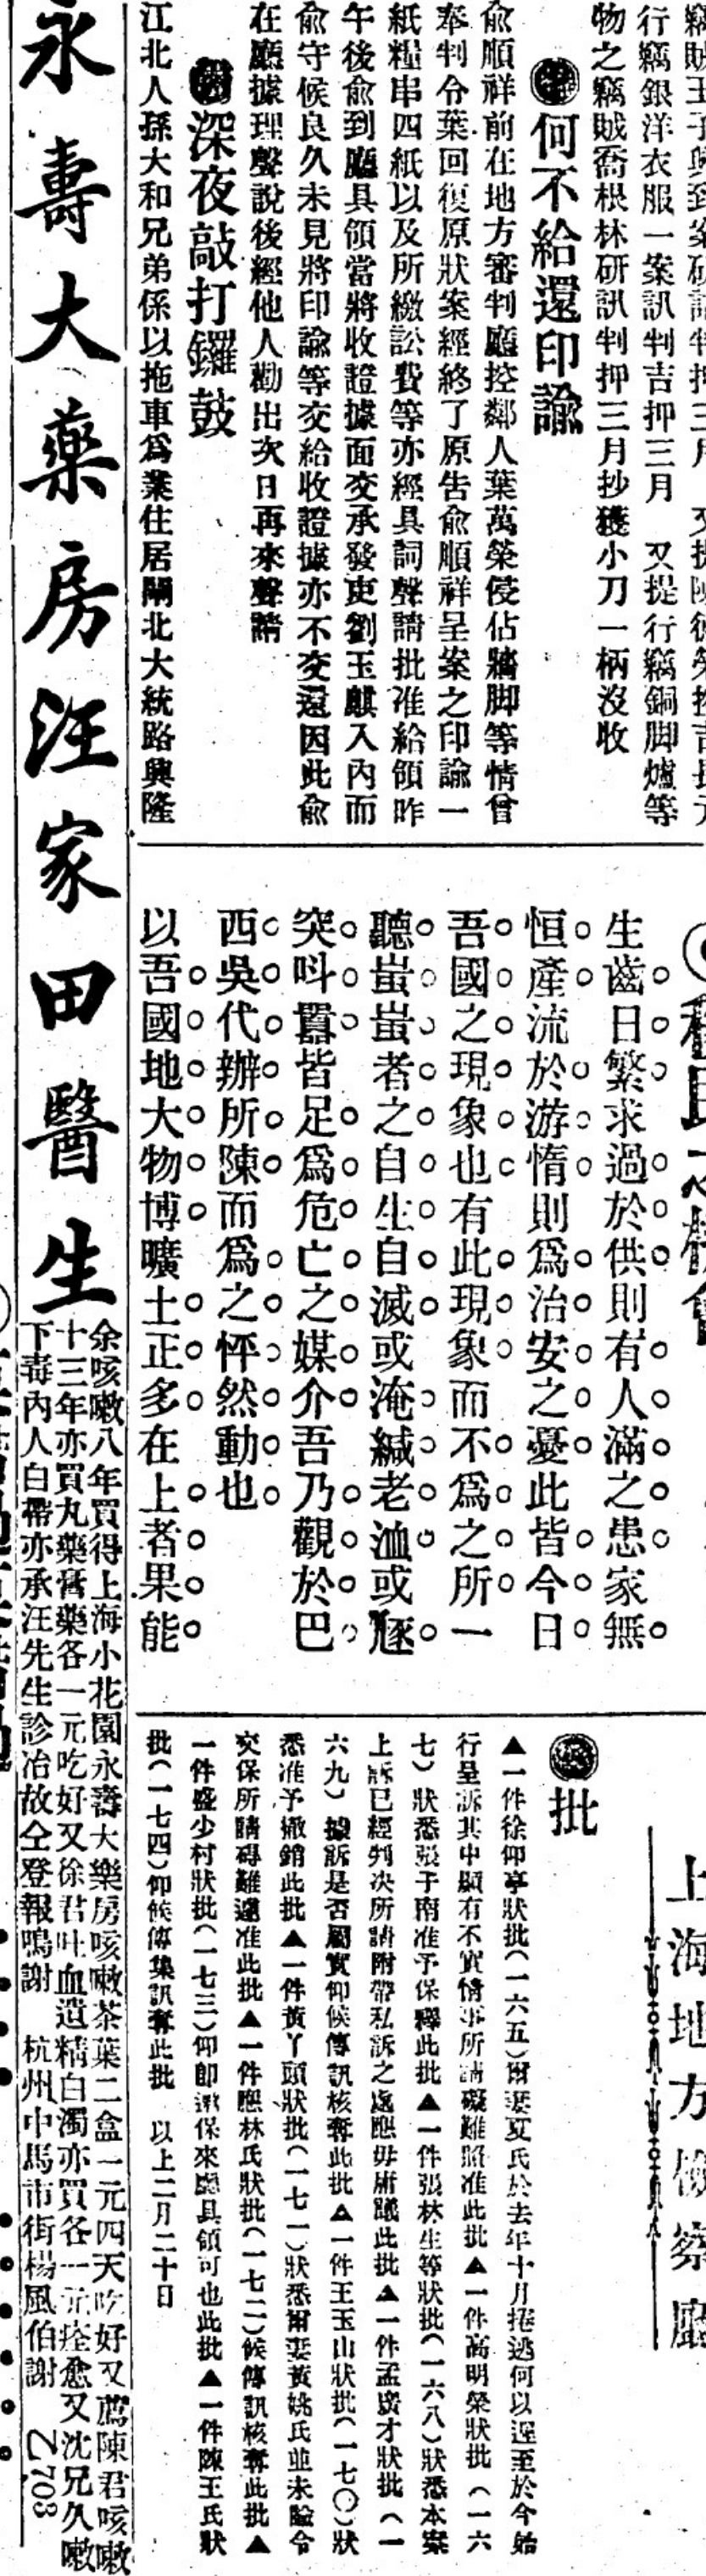 行竊銀洋衣服一案訊判吉押三月　又提行竊銅脚爐等
物之竊賊喬根林研訊判押三月抄獲小刀一柄沒收
何不給還印諭
俞順祥前在地方審判廳控鄰人葉萬榮侵佔牆脚等情曾
奉判令葉回復原狀案經終了原告俞順祥呈案之印諭一
紙糧串四紙以及所繳訟費等亦經具詞聲請批准給領昨
午後俞到廳具領當將收證據面交承發吏劉玉麒入內而
俞守候良久未見將印諭等交給收證據亦不交還因此俞
在廳據理聲說後經他人勸出次日再來聲請
深夜敲打鑼鼓
江北人孫大和兄弟係以拖車爲業住居閘北大統路興隆
生齒日繁求過於供則有人滿之患家無
恒產流於游惰則爲治安之憂此皆今日
吾國之現象也有此現象而不爲之所一
聽蚩蚩者之自生自滅或淹緘老洫或
突呌囂皆足爲危亡之媒介吾乃觀於巴
西吳代辦所陳而爲之怦然動也
以吾國地大物博曠土正多在上者果能
上海地方檢察廳
批
▲一件徐仰亭狀批（一六五）爾妻夏氏於去年十月捲逃何以遲至於今始
行呈訴其中顯有不實情事所請礙難照准此批▲一件高明榮狀批（一六
七）狀悉張子南准予保釋此批▲一件張林生等狀批（一六八）狀悉本案
上訴已經判决所請附帶私訴之處應毋庸議此批▲一件孟廣才狀批（一
六九）據訴是否屬實仰候傳訊核奪此批▲一件王玉山狀批（一七〇）狀
悉准予撤銷此批▲一件黃丫頭狀批（一七一）狀悉爾妻黃姚氏並未驗令
交保所請碍難遽准此批▲一件應林氏狀批（一七二）候傳訊核奪此批▲
一件盛少村狀批（一七三）仰卽邀保來廳具領可也此批▲一件陳王氏狀
批（一七四）仰候傳集訊奪此批　以上二月二十日
永壽大藥房汪家田醫生
余咳嗽八年買得上海小花園永壽大樂房咳嗽茶葉二盒一元四天吃好又薦陳君咳嗽
十三年亦買丸藥膏藥各一元吃好又徐君吐血遺精白濁亦買各一元痊愈又沈兄久嗽
下毒內人白帶亦承汪先生診冶故仝登報鳴謝　杭州中馬市街楊風伯謝　乙703